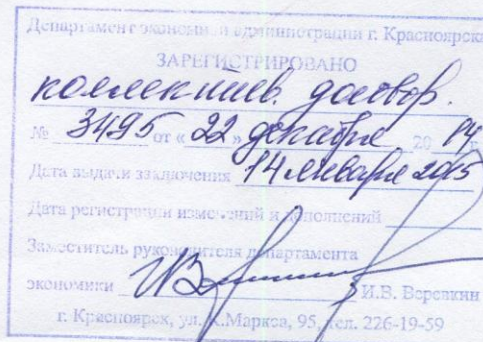 Департамент экономики администрации г. Красноярска
ЗАРЕГИСТРИРОВАНО
коллектив. договор.
№ 3495 от « 22 » декабря 20 14 г.
Дата выдачи заключения 14 января 2015
Дата регистрации изменений и дополнений
Заместитель руководителя департамента
экономики И.В. Веревкин
г. Красноярск, ул. К.Маркса, 95, тел. 226-19-59